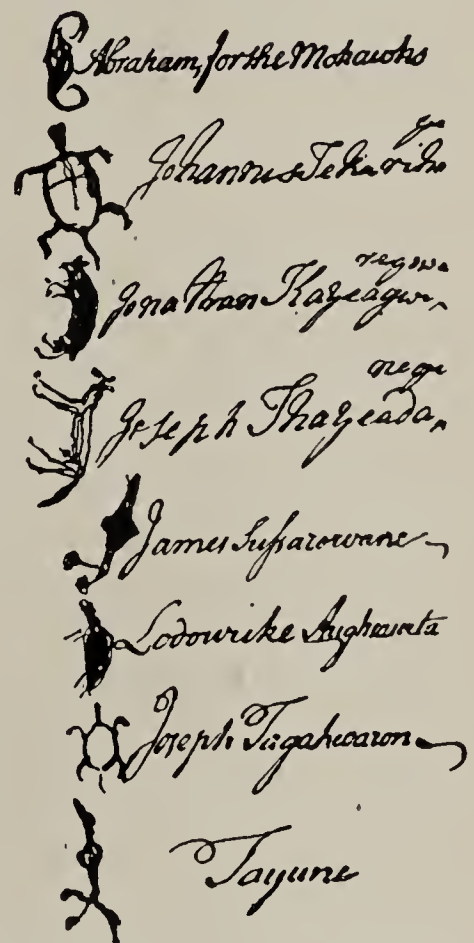 Abraham, for the Mohawks
Johannus Tekarihoge
Jonathan Kayeagwiregowa
Joseph Thayeadanege
James Sussarowane
Lodowike Aughwata
Joseph Tagahwaron
Tayune